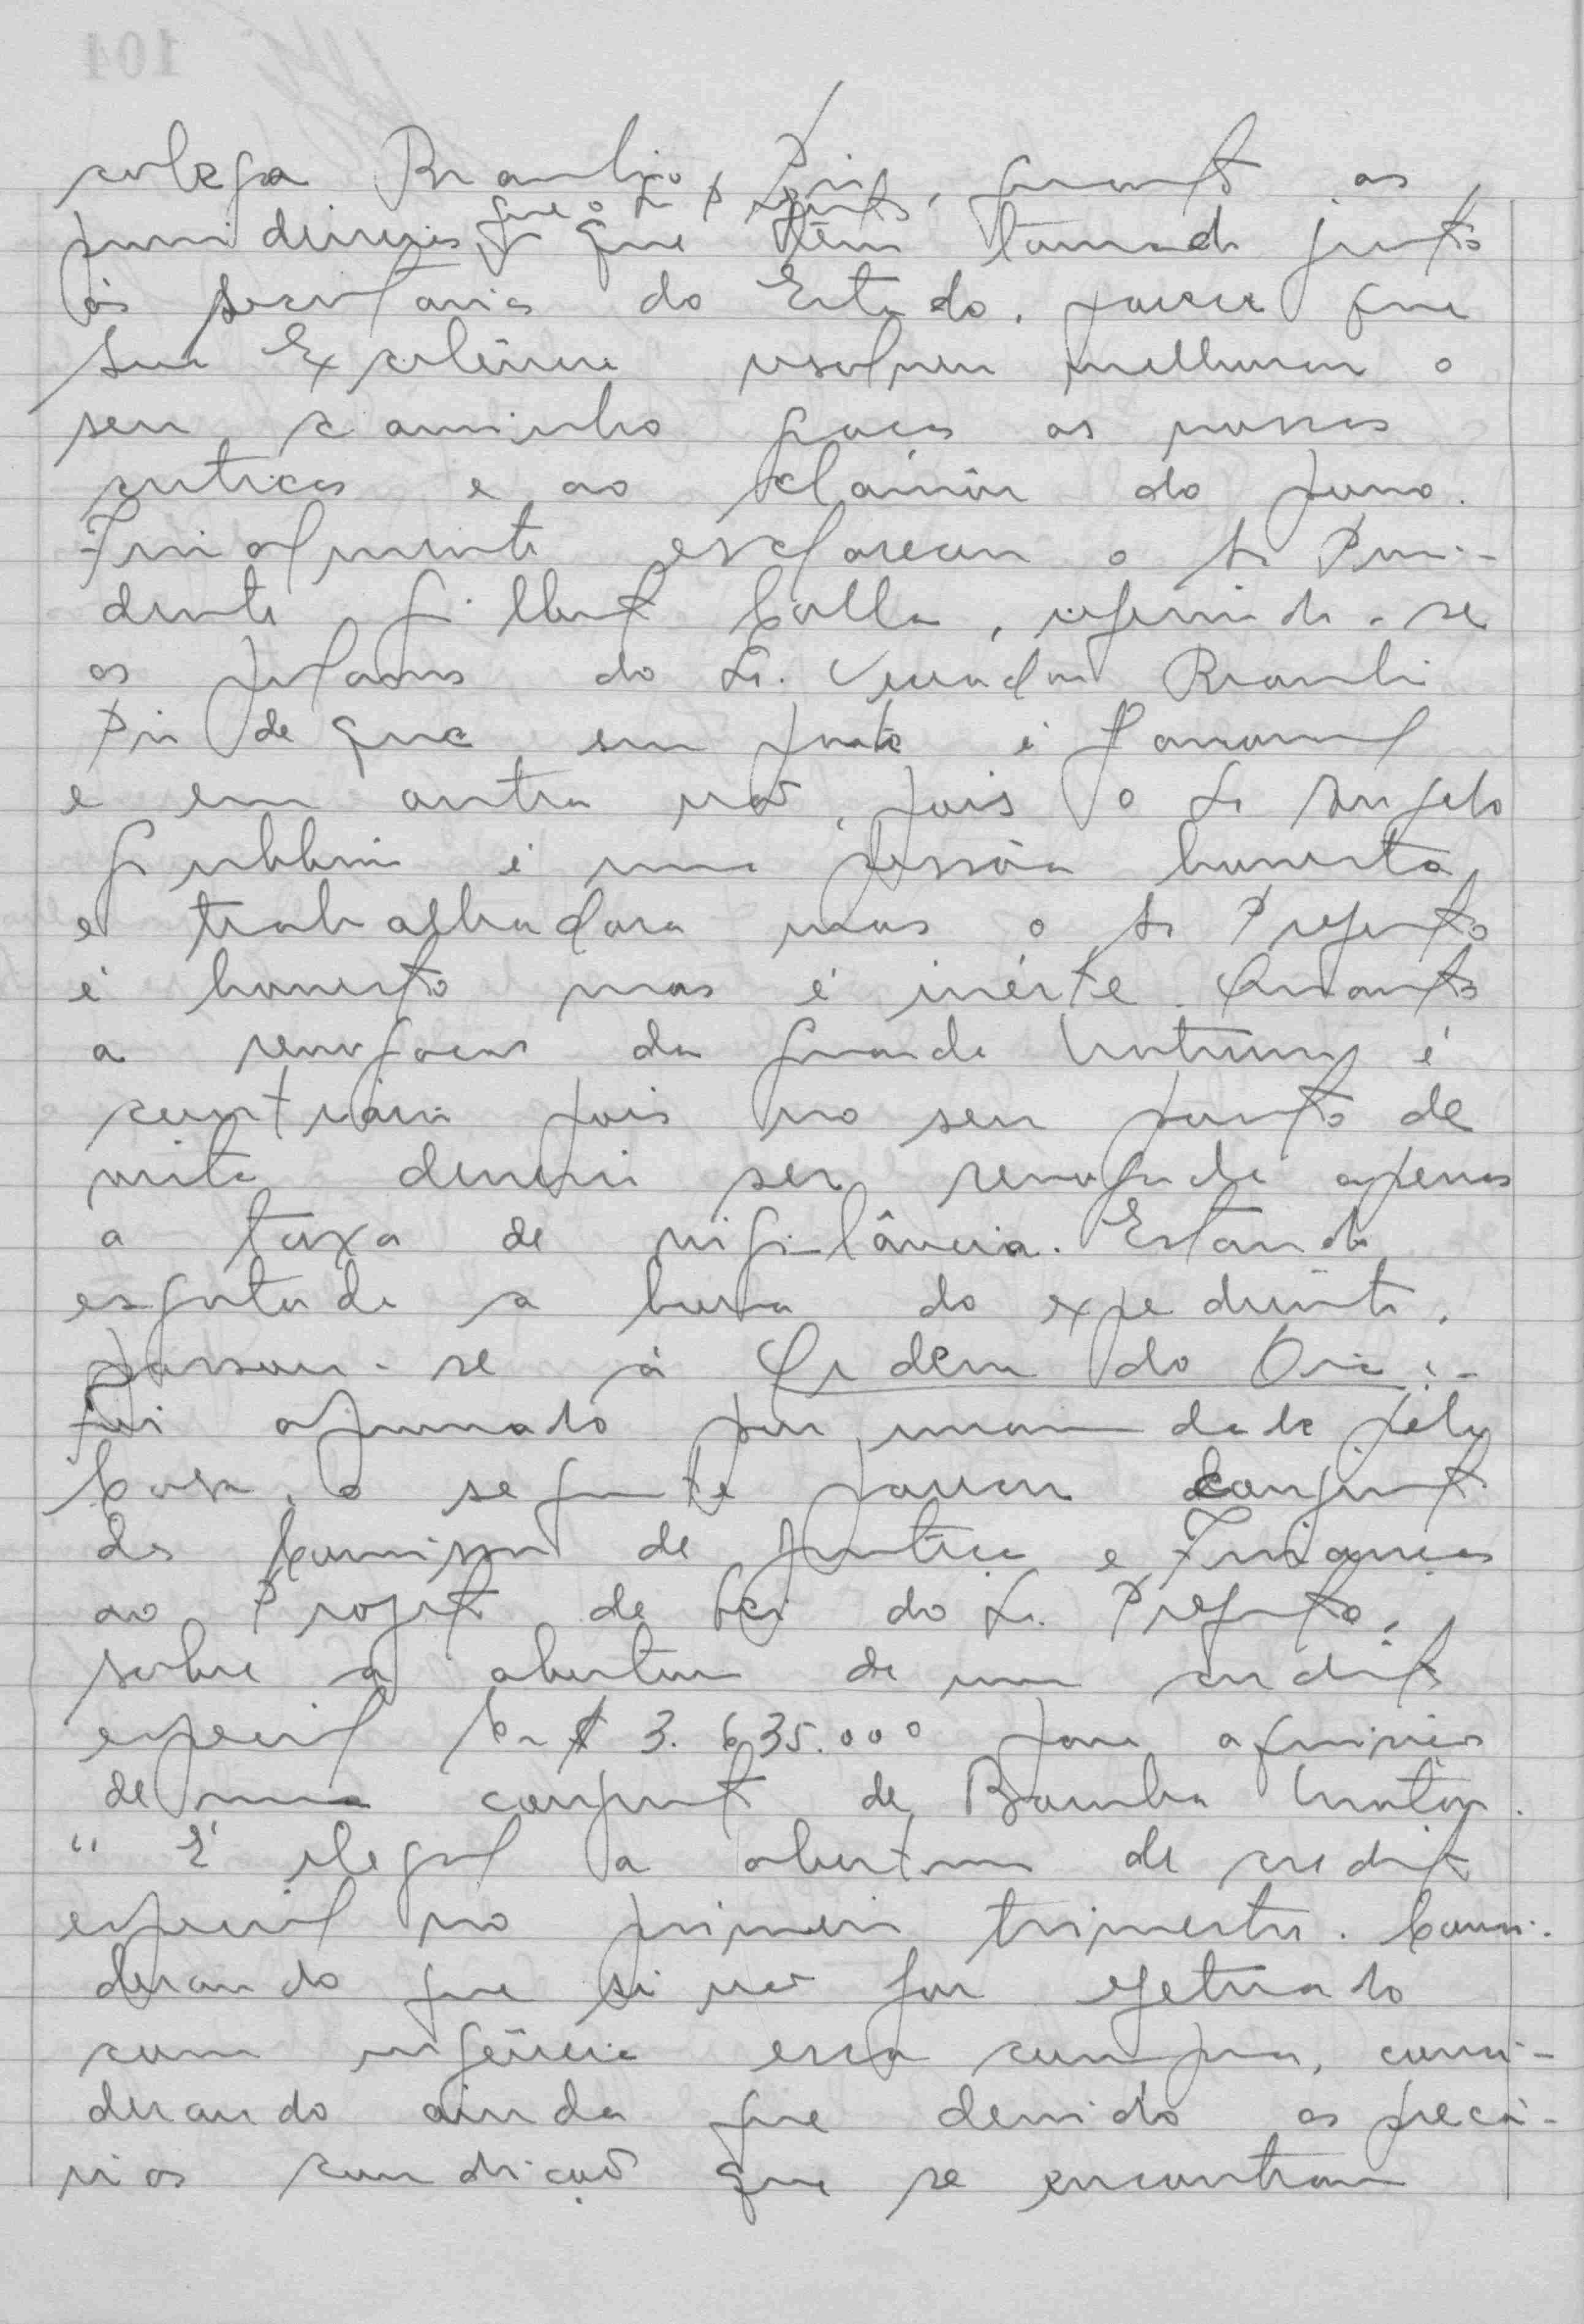 colega Braulio Pio, quanto as
providencias que o Sr Prefeito que têm tomado junto
ás secretarias do Estado, parece que
Sua Excelência resolveu melhorar o
seu caminho graças as nossas
criticas e ao clamôr do povo.
Finalmente esclareceu o Sr Presi-
dente Gilbert Calla, referindo-se
as palavras do Sr. Vereador Braulio
Pio de que em parte é favoravel
e em outra não, pois o Sr Angelo
Gubbini é uma pessôa honesta
e trabalhadora mas o Sr Prefeito
é honesto mas é inérte. Quanto
a revogacao da Guarda Noturna é
contrário pois no seu ponto de
vista deveria ser revogada apenas
a taxa de vigilância. Estando
esgotada a hora do expediente,
passou-se á Ordem do Dia:-
Foi aprovado por unanimidade pela
Casa, o seguinte parecer conjunto
da Comissão de Justiça e Finanças
ao Projeto de Lei do Sr. Prefeito,
sobre a abertura de um credito
especial Cr$ 3.635.000 para aquisição
de uma conjunto de Bomba
"É ilegal a abertura de credito
especial no primeiro trimestre. Consi-
derando que si não for efetuado
com urgência essa compra, consi-
derando ainda que devido as precá-
rias condicão que se encontram